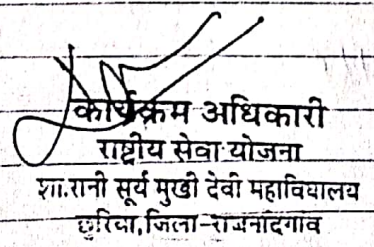 कार्यक्रम अधिकारी
राष्ट्रीय सेवा योजना
शा.रानी सूर्य मुखी देवी महाविद्यालय
छुरिया, जिला-राजनांदगाव